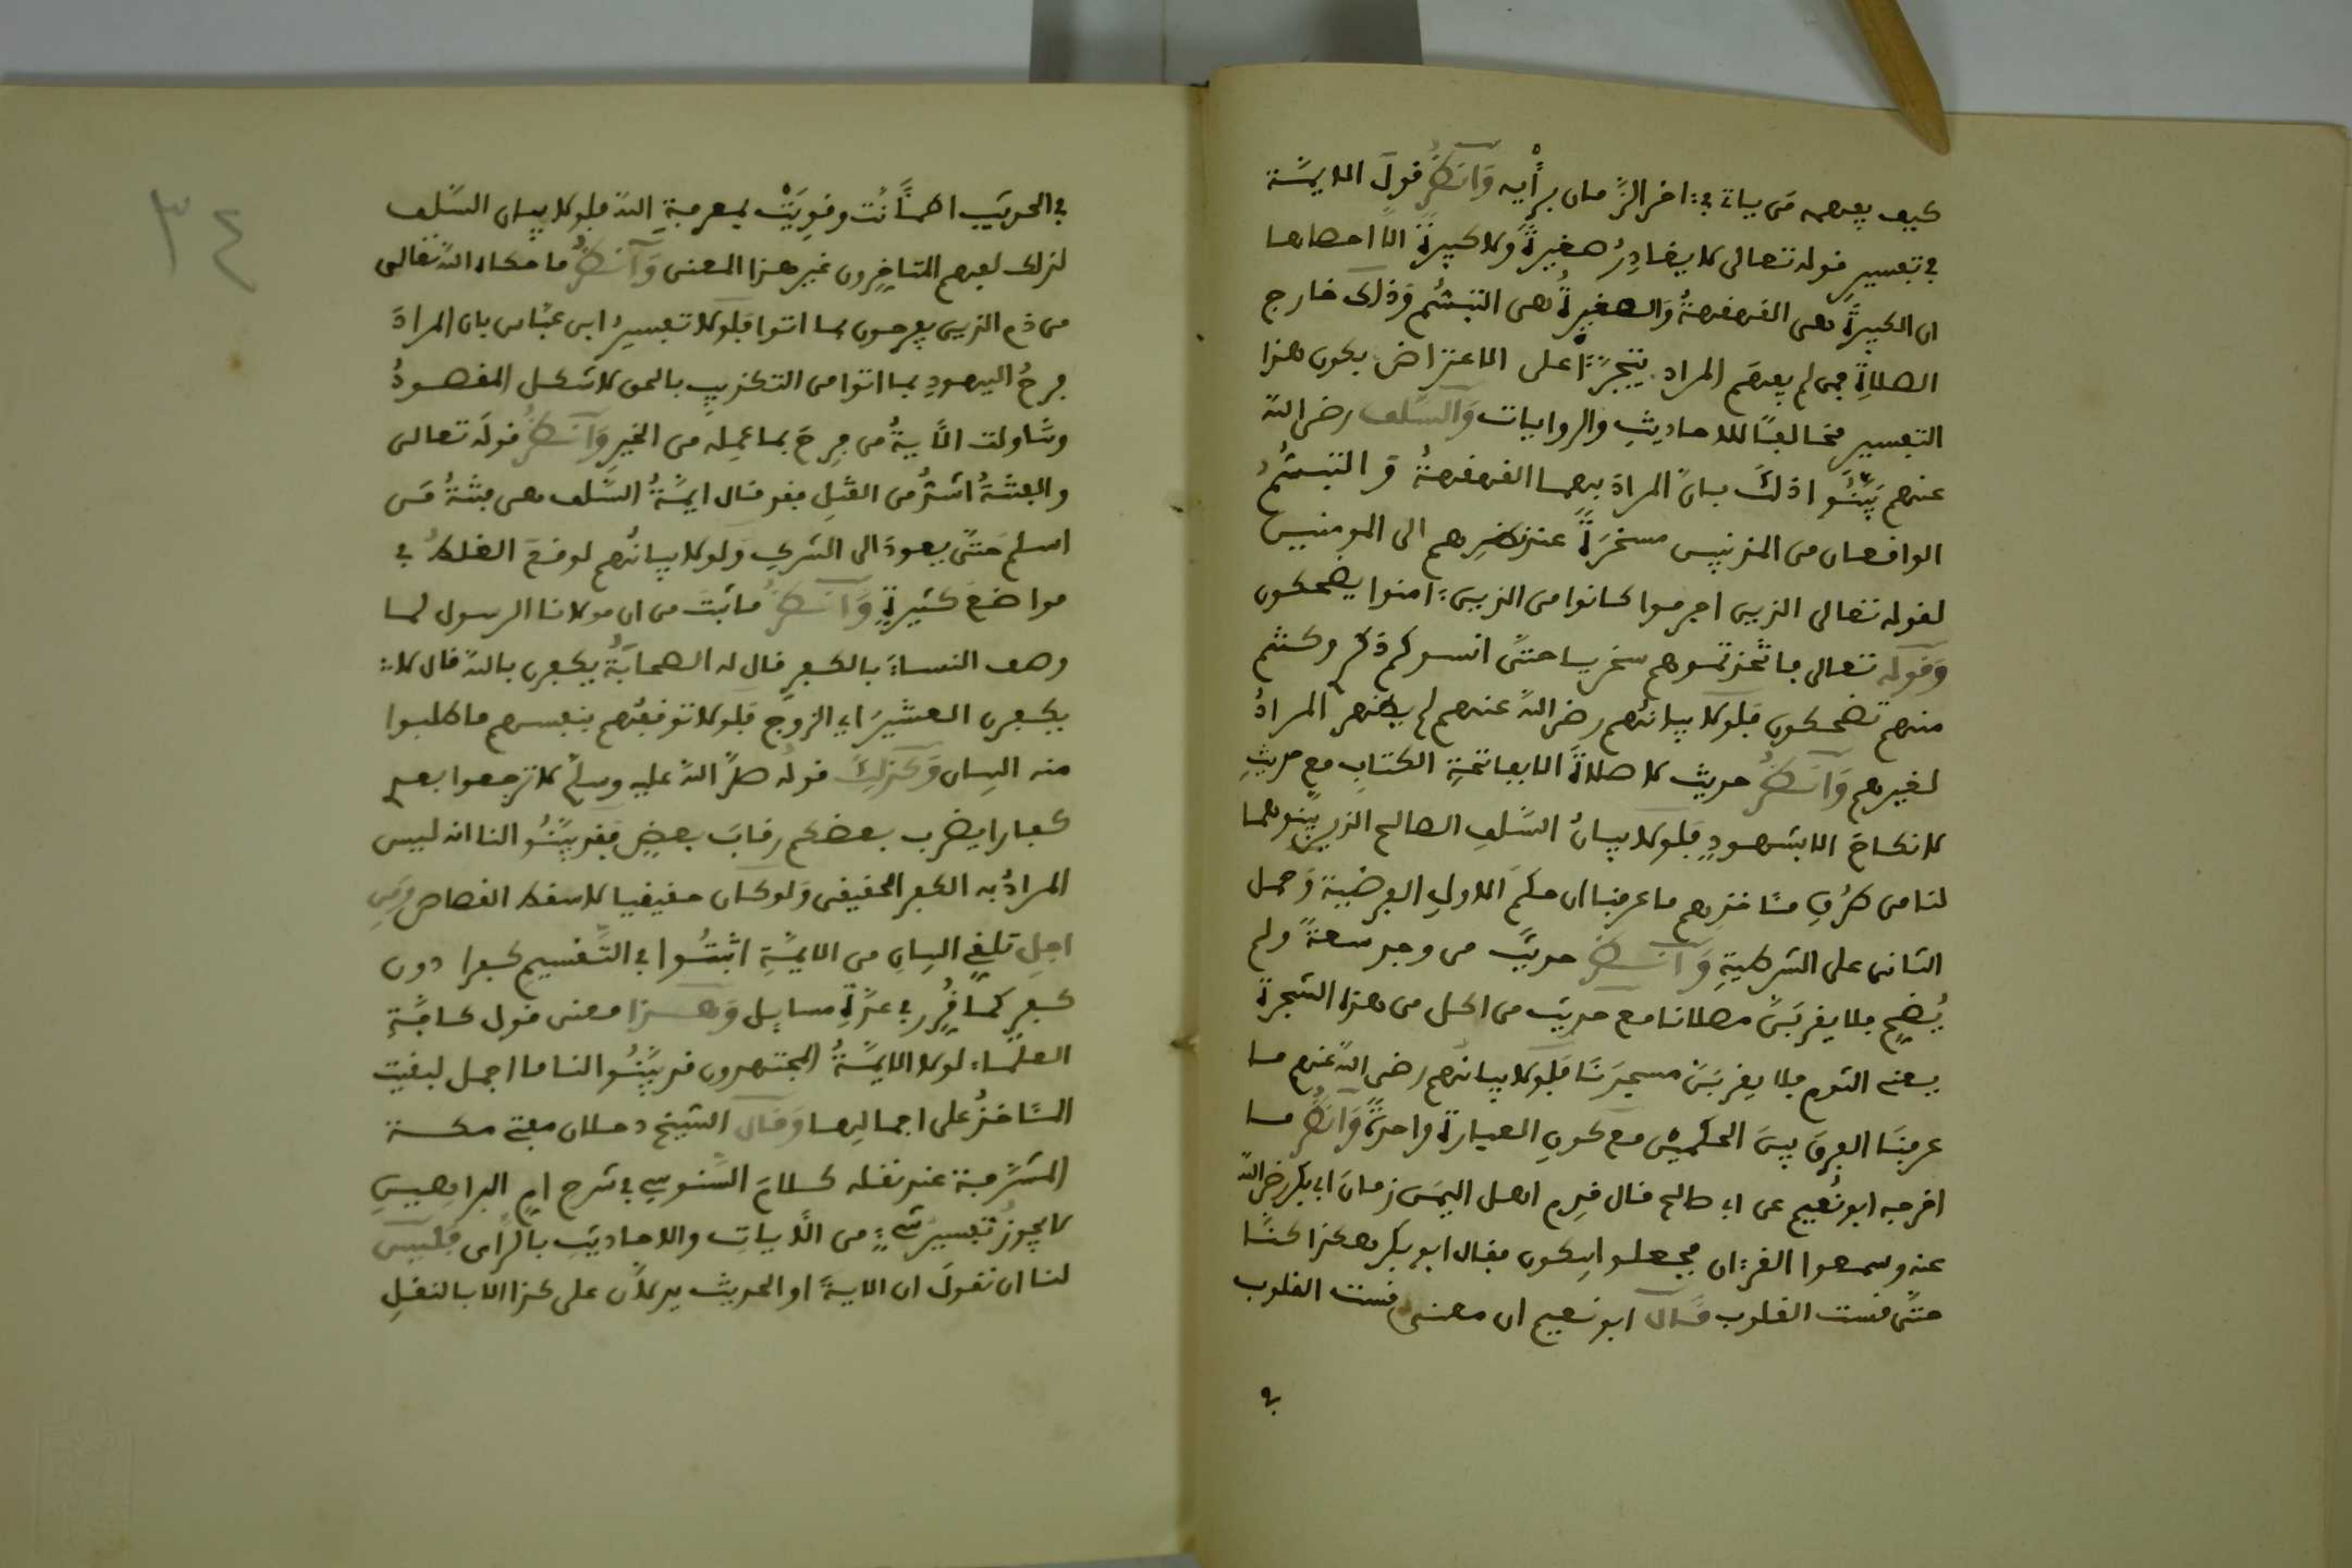 كيف يفهمه من ياتي في ءاخر الزمان برأيه وَانظر قول الايمة
في تفسير قوله تعالى لا يغادر صغيرة ولا كبيرة الا احصاها
ان الكبيرة هي القهقهة والصغيرة هي التبسم وذلك خارج
الصلاة فمن لم يفهم المراد يتجرأ على الاعتراض بكون هذا
التفسير مخالفا للاحاديث والروايات والسلف رضي الله
عنهم بينوا ذلك بان المراد بهما القهقهة والتبسم
الواقعان من المذنبين مسخرة عند نظرهم الى المومنين
لقوله تعالى الذين اجرموا كانوا من الذين ءامنوا يضحكون
وقوله تعالى فاتخذتموهم سخريا حتى انسوكم ذكر وكنتم
منهم تضحكون فلولا بيانهم رضي الله عنهم لم يظهر المراد
لغيرهم وانظر حديث لا صلاة الا بفاتحة الكتاب مع حديث
لا نكاح الا بشهود فلولا بيان السلف الصالح الذين بينوهما
لنا من طرق متاخذهم ما عرفنا ان حكم الاول الفرضية وحمل
الثاني على الشرطية وانظر حديث من وجد سعة ولم
يضح فلا يقربن مصلانا مع حديث من اكل من هذه الشجرة
يعني الثوم فلا يقربن مسجدنا فلولا بيانهم رضي الله عنهم ما
عرفنا الفرق بين الحكمين مع كون العبارة واحدة وانظر ما
اخرجه ابو نعيم عن ابي صالح قال قدم اهل اليمن زمان ابي بكر رضي الله
عنه وسمعوا القرءان فجعلوا يبكون فقال ابو بكر هكذا كنا
حتى قست القلوب قال ابو نعيم ان معنى قست القلوب
في
٣٤
في الحديث اطمأنت وقويت بمعرفة الله فلولا بيان السلف
لذلك لفهم المتاخرون غير هذا المعنى وانظر ما حكاه الله تعالى
من ذم الذين يفرحون بما اتوا فلولا تفسير ابن عباس بان المراد
فرح اليهود بما اتوا من التكذيب بالحق لاشكل المقصود
وتناولت الاية من فرح بما عمله من الخير وانظر قوله تعالى
والفتنة اشد من القتل فقد قال ايمة السلف هي فتنة من
اسلم حتى يعود الى الشرك ولولا بيانهم لوقع الغلط في
مواضع كثيرة وانظر ما ثبت من ان مولانا الرسول لما
وصف النساء بالكفر قال له الصحابة يكفرن بالله قال لا
يكفرن العشير اي الزوج فلولا توقفهم بنفسهم ما طلبوا
منه البيان وكذلك قوله صلى الله عليه وسلم لا ترجعوا بعدي
كفارا يضرب بعضكم رقاب بعض فقد بينوا لنا انه ليس
المراد به الكفر الحقيقي ولو كان حقيقيا لاسقط القصاص ومن
اجل تلقي البيان من الايمة اثبتوا في التقسيم كفرا دون
كفر كما قرر في عدة مسايل وهذا معنى قول كافة
العلماء لولا الايمة المجتهدون قد بينوا لنا ما اجمل لبقيت
السنة على اجمالها وقال الشيخ دحلان مفتي مكة
المشرفة عند نقله كلام السنوسي في شرح ام البراهين
لا يجوز تفسير شيء من الايات والاحاديث بالرأي فليس
لنا ان نقول ان الاية او الحديث يدلان على كذا الا بالنقل